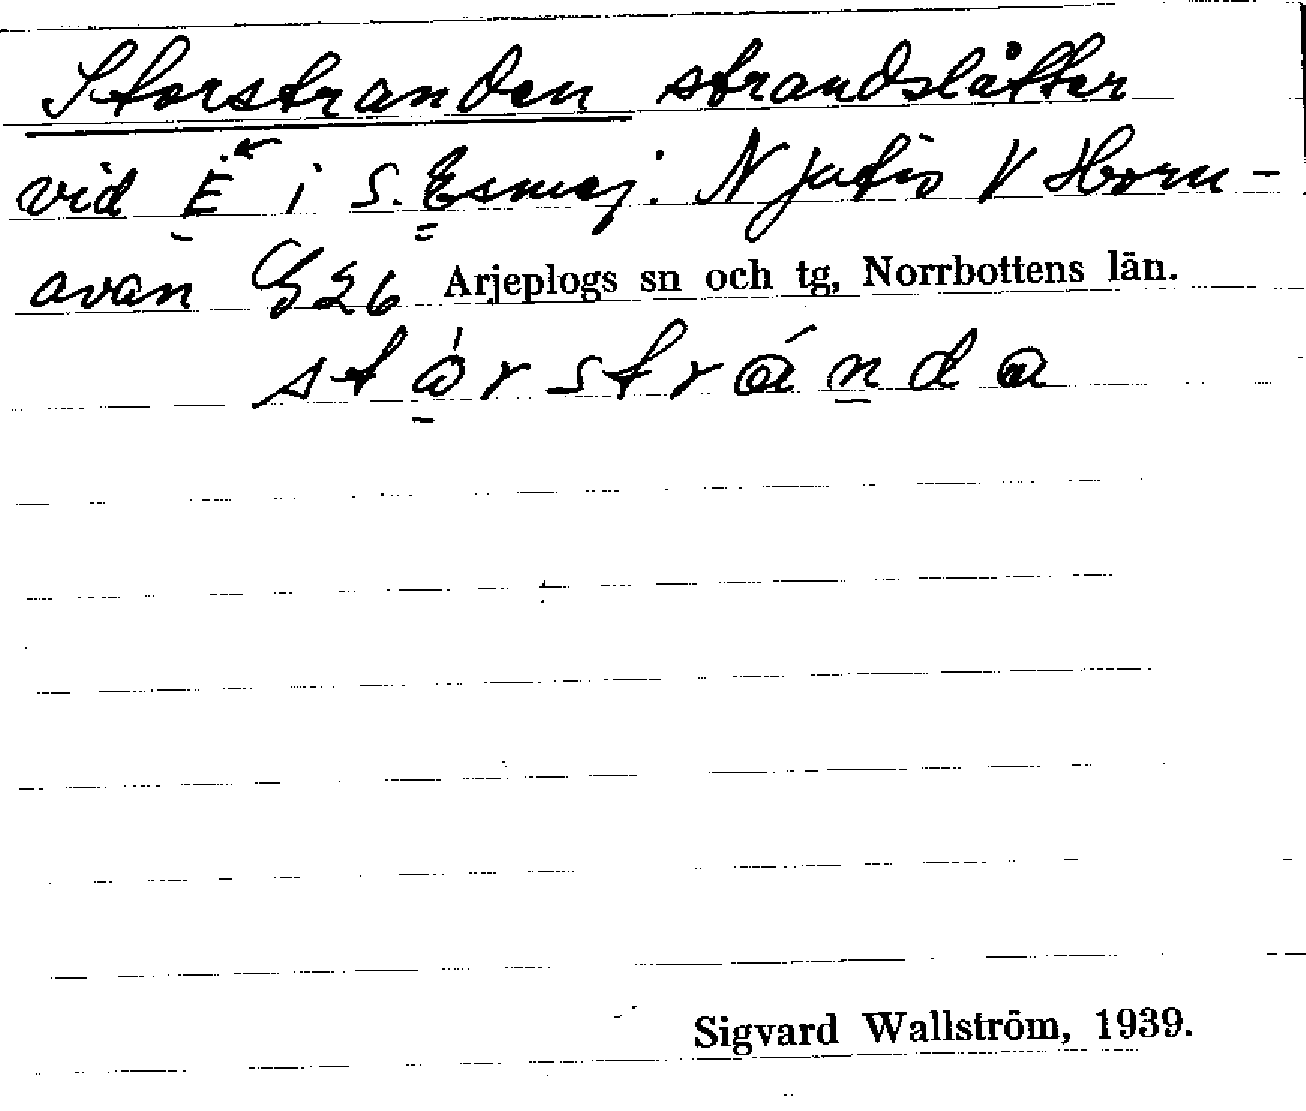 Storstranden strandslåtter
vid E i S. Esmej. Njatis V Horn-
avan G26 Arjeplogs sn och tg, Norrbottens län.
stòrstránda
Sigvard Wallström, 1939.